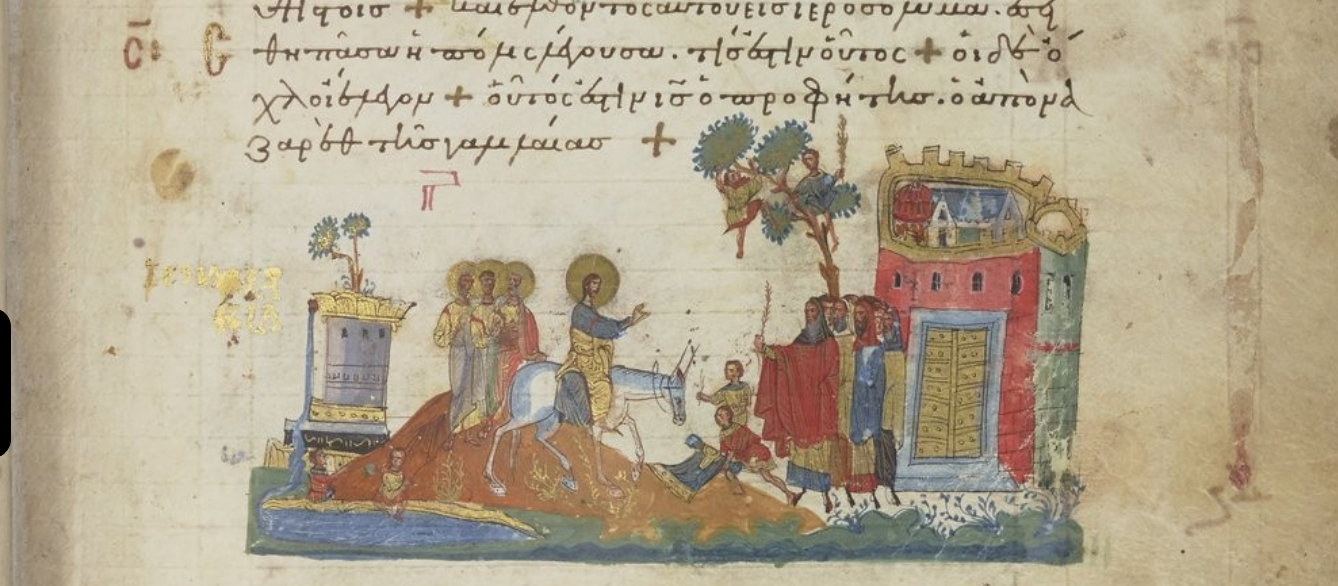 καὶ εἰσελθόντος αὐτοῦ εἰς ἱεροσόλυμα. ἐσεί
σθη πᾶσα ἡ πόλις λέγουσα. τίς ἐστιν οὗτος + οἱ δὲ ὄ
χλοι ἔλεγον + οὗτός ἐστιν ι̅ς̅ ὁ προφήτης. ὁ ἀπὸ να
ζαρὲθ τῆς γαλιλαίας +